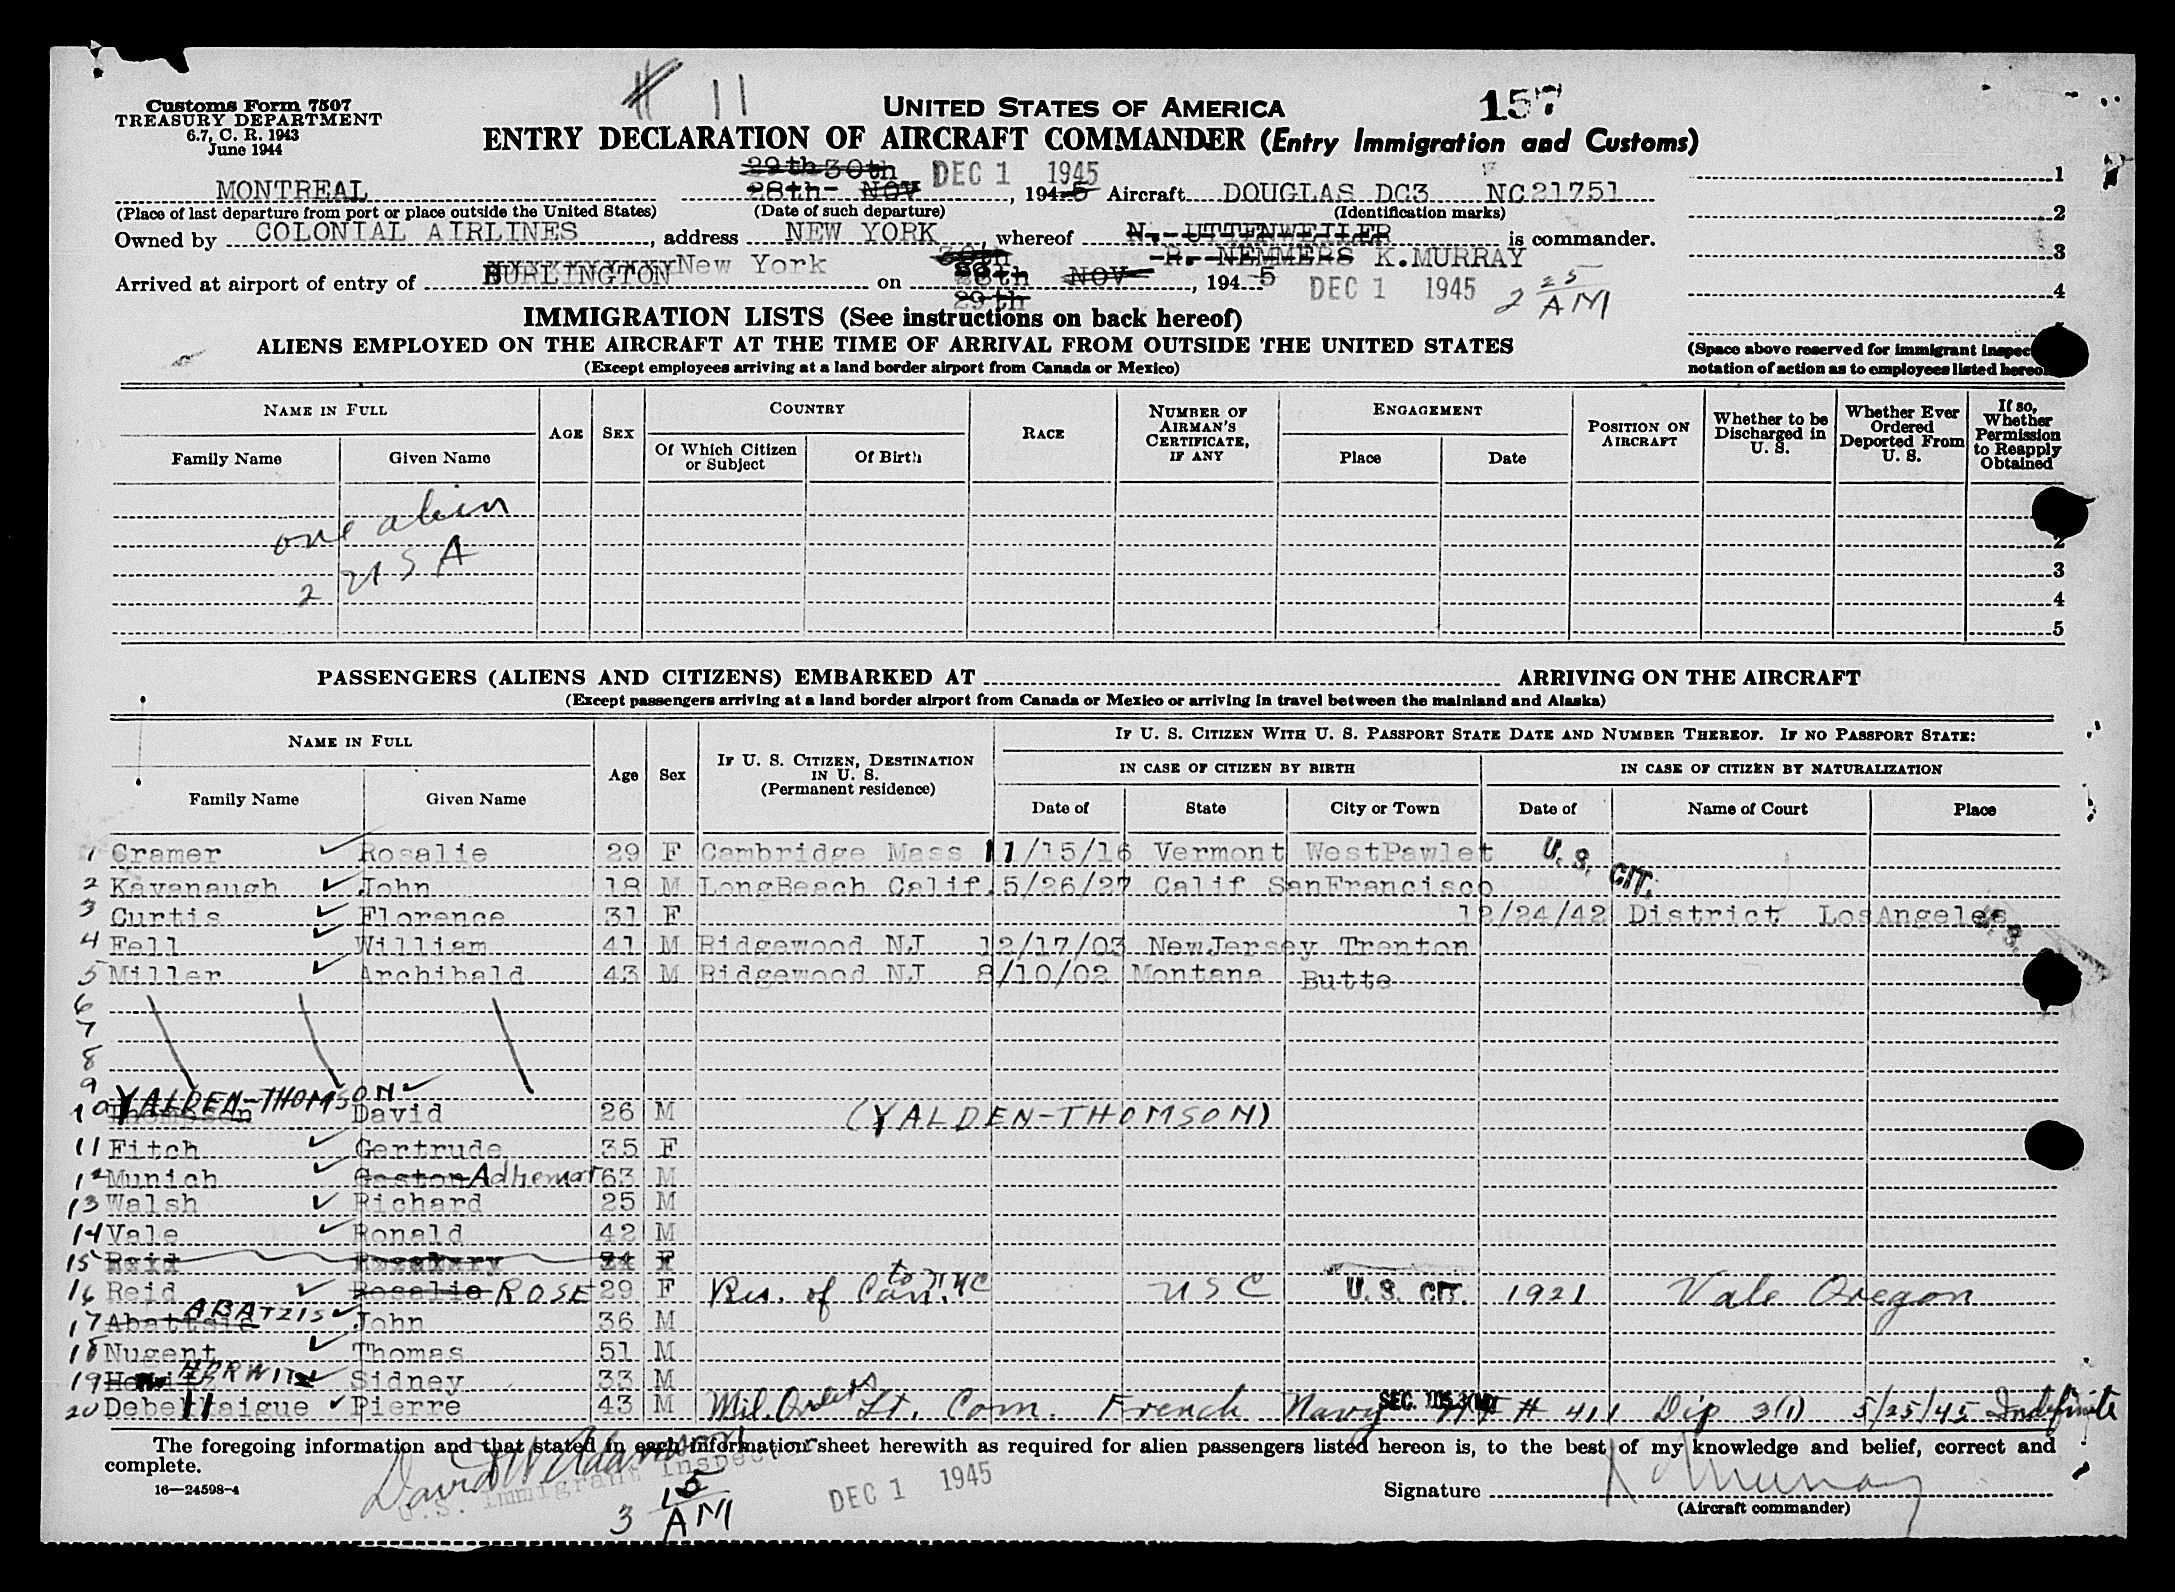 # 11
157
Customs Form 7507
TREASURY DEPARTMENT
6.7, C. R. 1943
June 1944
UNITED STATES OF AMERICA
ENTRY DECLARATION OF AIRCRAFT COMMANDER (Entry Immigration and Customs)
29th 30th DEC 1 1945
MONTREAL 28th- NOV , 194 5 Aircraft DOUGLAS DC3 NC21751 1
(Place of last departure from port or place outside the United States) (Date of such departure) (Identification marks) 2
Owned by COLONIAL AIRLINES , address NEW YORK , whereof N. UTTENWEILER is commander.
30th R. NEMMERS K.MURRAY 3
Arrived at airport of entry of BURLINGTON New York on 28th NOV , 194 5 DEC 1 1945 2 25 AM 4
29th
IMMIGRATION LISTS (See instructions on back hereof)
ALIENS EMPLOYED ON THE AIRCRAFT AT THE TIME OF ARRIVAL FROM OUTSIDE THE UNITED STATES
(Except employees arriving at a land border airport from Canada or Mexico)
(Space above reserved for immigrant inspec
notation of action as to employees listed hereo
NAME IN FULL AGE SEX COUNTRY RACE NUMBER OF AIRMAN'S CERTIFICATE, IF ANY ENGAGEMENT POSITION ON AIRCRAFT Whether to be Discharged in U. S. Whether Ever Ordered Deported From U. S. If so, Whether Permission to Reapply Obtained
Family Name Given Name Of Which Citizen or Subject Of Birth Place Date
one alien
2
2 USA 3
4
5
PASSENGERS (ALIENS AND CITIZENS) EMBARKED AT ARRIVING ON THE AIRCRAFT
(Except passengers arriving at a land border airport from Canada or Mexico or arriving in travel between the mainland and Alaska)
NAME IN FULL Age Sex IF U. S. CITIZEN, DESTINATION IN U. S. (Permanent residence) IF U. S. CITIZEN WITH U. S. PASSPORT STATE DATE AND NUMBER THEREOF. IF NO PASSPORT STATE:
IN CASE OF CITIZEN BY BIRTH IN CASE OF CITIZEN BY NATURALIZATION
Family Name Given Name Date of State City or Town Date of Name of Court Place
1 Cramer Rosalie 29 F Cambridge Mass 11/15/16 Vermont WestPawlet U. S. CIT.
2 Kavenaugh John 18 M LongBeach Calif. 5/26/27 Calif SanFrancisco
3 Curtis Florence 31 F 12/24/42 District LosAngeles
4 Fell William 41 M Ridgewood NJ 12/17/03 NewJersey Trenton U. S.
5 Miller Archibald 43 M Ridgewood NJ 8/10/02 Montana Butte
6
7
8
9
YALDEN-THOMSON
10 Thompson David 26 M (YALDEN-THOMSON)
11 Fitch Gertrude 35 F
12 Munich Gaston Adhemar 63 M
13 Walsh Richard 25 M
14 Vale Ronald 42 M
15 Reid Rosemary 24 F
16 Reid Rosalie ROSE 29 F Res. of Can. to NYC USC U. S. CIT. 1921 Vale Oregon
ABATZIS
17 Abattsis John 36 M
18 Nugent Thomas 51 M
HORWITZ
19 Sidney 33 M
20 Debellaigue Pierre 43 M Mil. Orders Lt. Com. French Navy # 411 Dip 3(1) 5/25/45 Indefinite
The foregoing information and that stated in each information sheet herewith as required for alien passengers listed hereon is, to the best of my knowledge and belief, correct and
complete.
16—24598-4
David W Adamson
U.S. Immigrant Inspector
3 15 AM
DEC 1 1945
Signature K Murray
(Aircraft commander)